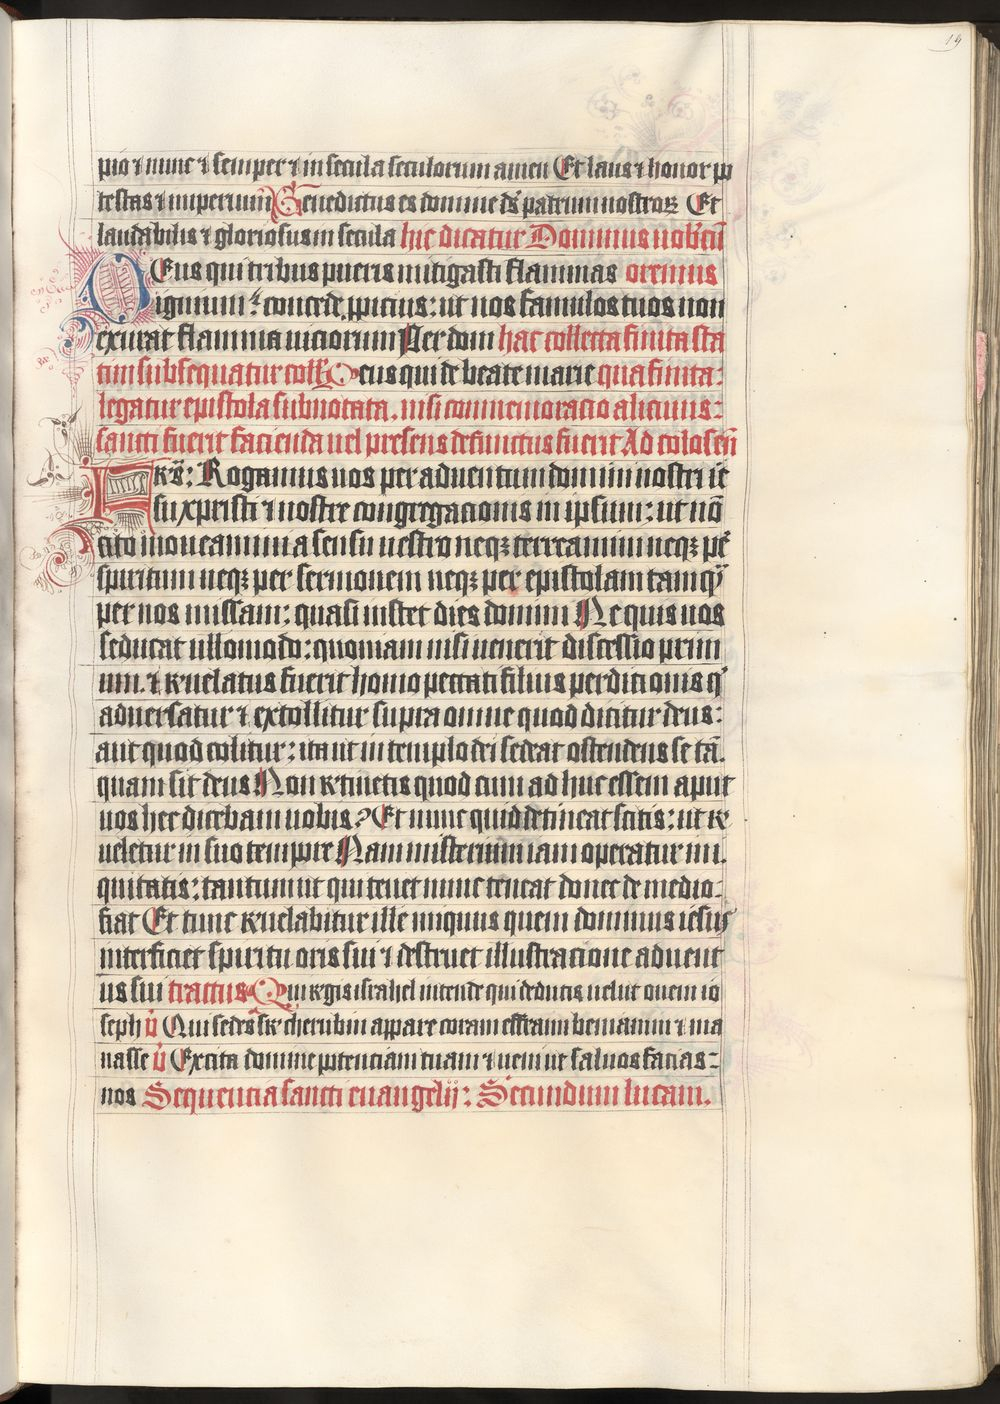 19
pio ⁊ nunc ⁊ semper ⁊ in secula seculorum amen Et laus ⁊ honor po
testas ⁊ imperium Benedictus es domine ds̄ patrum nostroꝝ Et
laudabilis ⁊ gloriosus in secula hic dicatur Dominus nob̄cū
DEus qui tribus pueris mitigasti flammas oremus
ignium concede ꝓpicius: ut nos famulos tuos non
exurat flamma viciorum Per dom hac collecta finita sta
tim subsequatur coll' Deus qui de beate marie qua finita:
legatur epistola subnotata. nisi commemoracio alicuius:
sancti fuerit facienda vel presens defunctus fuerit Ad colosen̄
FRs̄: Rogamus vos per adventum domini nostri ie
su xpristi ⁊ nostre congregacionis in ipsum: ut nō
cito moveamini a sensu vestro neqꝫ terreamini neqꝫ pe
spiritum neqꝫ per sermonem neqꝫ per epistolam tamqͣ
per nos missam: quasi instet dies domini Ne quis vos
seducat ullomodo: quoniam nisi venerit discessio prim
um. ⁊ revelatus fuerit homo peccati filius perditionis qͥ
adversatur ⁊ extollitur supra omne quod dicitur deus:
aut quod colitur: ita ut in templo dei sedeat ostendens se tā.
quam sit deus Non retinetis quod cum ad huc essem aput
vos hec dicebam vobis? Et nunc quid detineat scitis: ut re
veletur in suo tempore Nam misterium iam operatur ini.
quitatis: tantum ut qui tenet nunc teneat donec de medio:
fiat Et tunc revelabitur ille iniquus quem dominus iesus
interficiet spiritu oris sui ⁊ destruet illustracione advent
us sui tractus Qui regis israhel intende qui deducis velut ovem io
seph v̄ Qui sedes sr̄ cherubin appare coram effraim beniamin ⁊ ma
nasse v̄ Excita domine potenciam tuam ⁊ veni ut salvos facias:
nos Sequencia sancti euangelij: Secundum lucam.